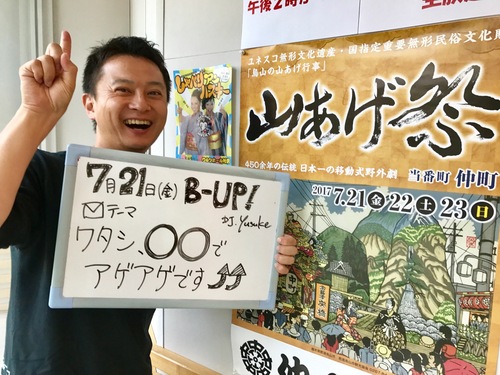 7月21日(金) B-UP!
DJ.Yusuke
テーマ
ワタシ、○○で
アゲアゲです
午後2時
ユネスコ無形文化遺産・国指定重要無形民俗文化財
「烏山の山あげ行事」
山あげ祭
450余年の伝統 日本一の移動式野外劇 当番町 仲町
2017 7.21金 22土 23日
仲